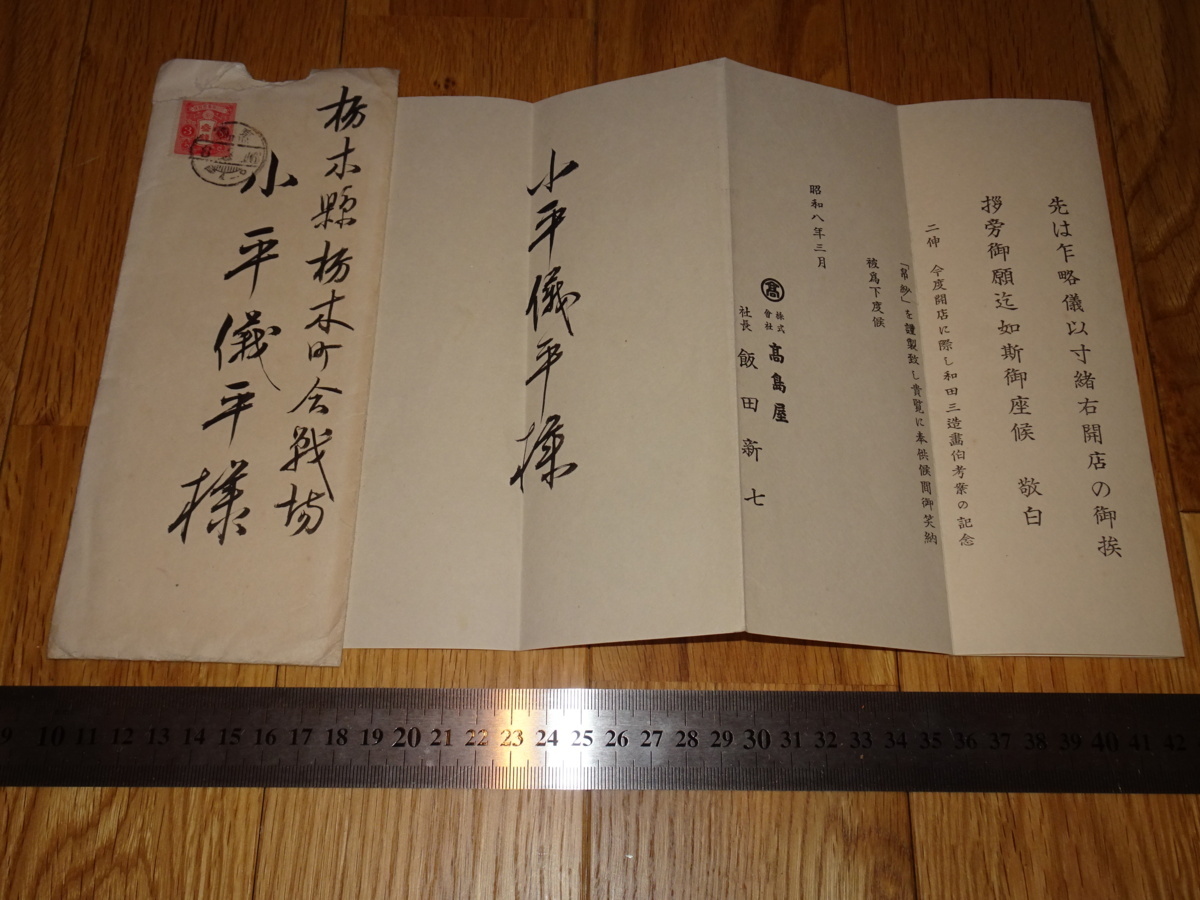 栃木縣栃木町会戦場
小平儀平様
小平儀平様
先は乍略儀以寸緒右開店の御挨
拶旁御願迄如斯御座候 敬白
二伸 今度開店に際し和田三造畵伯考案の記念
「帛紗」を謹製致し貴覧に奉供候間御笑納
被爲下度候
昭和八年三月
髙
株式會社 高島屋
社長 飯田新七
9 10 11 12 13 14 15 16 17 18 19 20 21 22 23 24 25 26 27 28 29 30 31 32 33 34 35 36 37 38 39 40 41 42